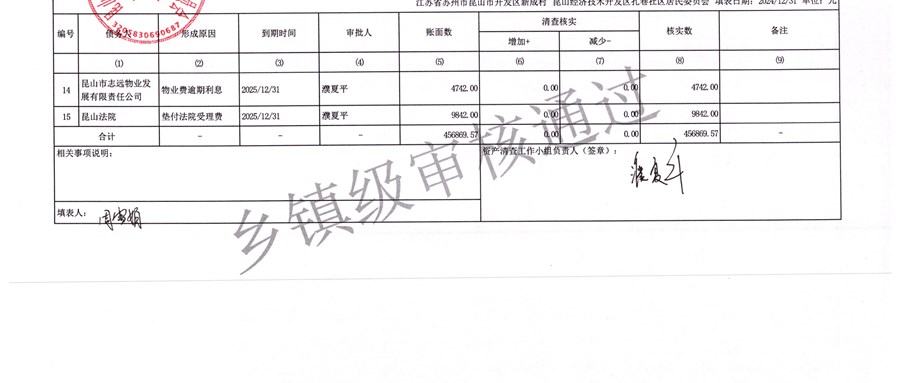 江苏省苏州市昆山市开发区新成村 昆山经济技术开发区孔巷社区居民委员会 填表日期：2024/12/31 单位：元
编号 债务人 形成原因 到期时间 审批人 账面数 清查核实 核实数 备注
增加+ 减少-
(1) (2) (3) (4) (5) (6) (7) (8) (9)
14 昆山市志远物业发展有限责任公司 物业费逾期利息 2025/12/31 濮夏平 4742.00 0.00 0.00 4742.00
15 昆山法院 垫付法院受理费 2025/12/31 濮夏平 9842.00 0.00 0.00 9842.00
合计 - - - 456869.57 0.00 0.00 456869.57 -
相关事项说明：
资产清查工作小组负责人（签章）：
填表人：
乡镇级审核通过
3205830690687